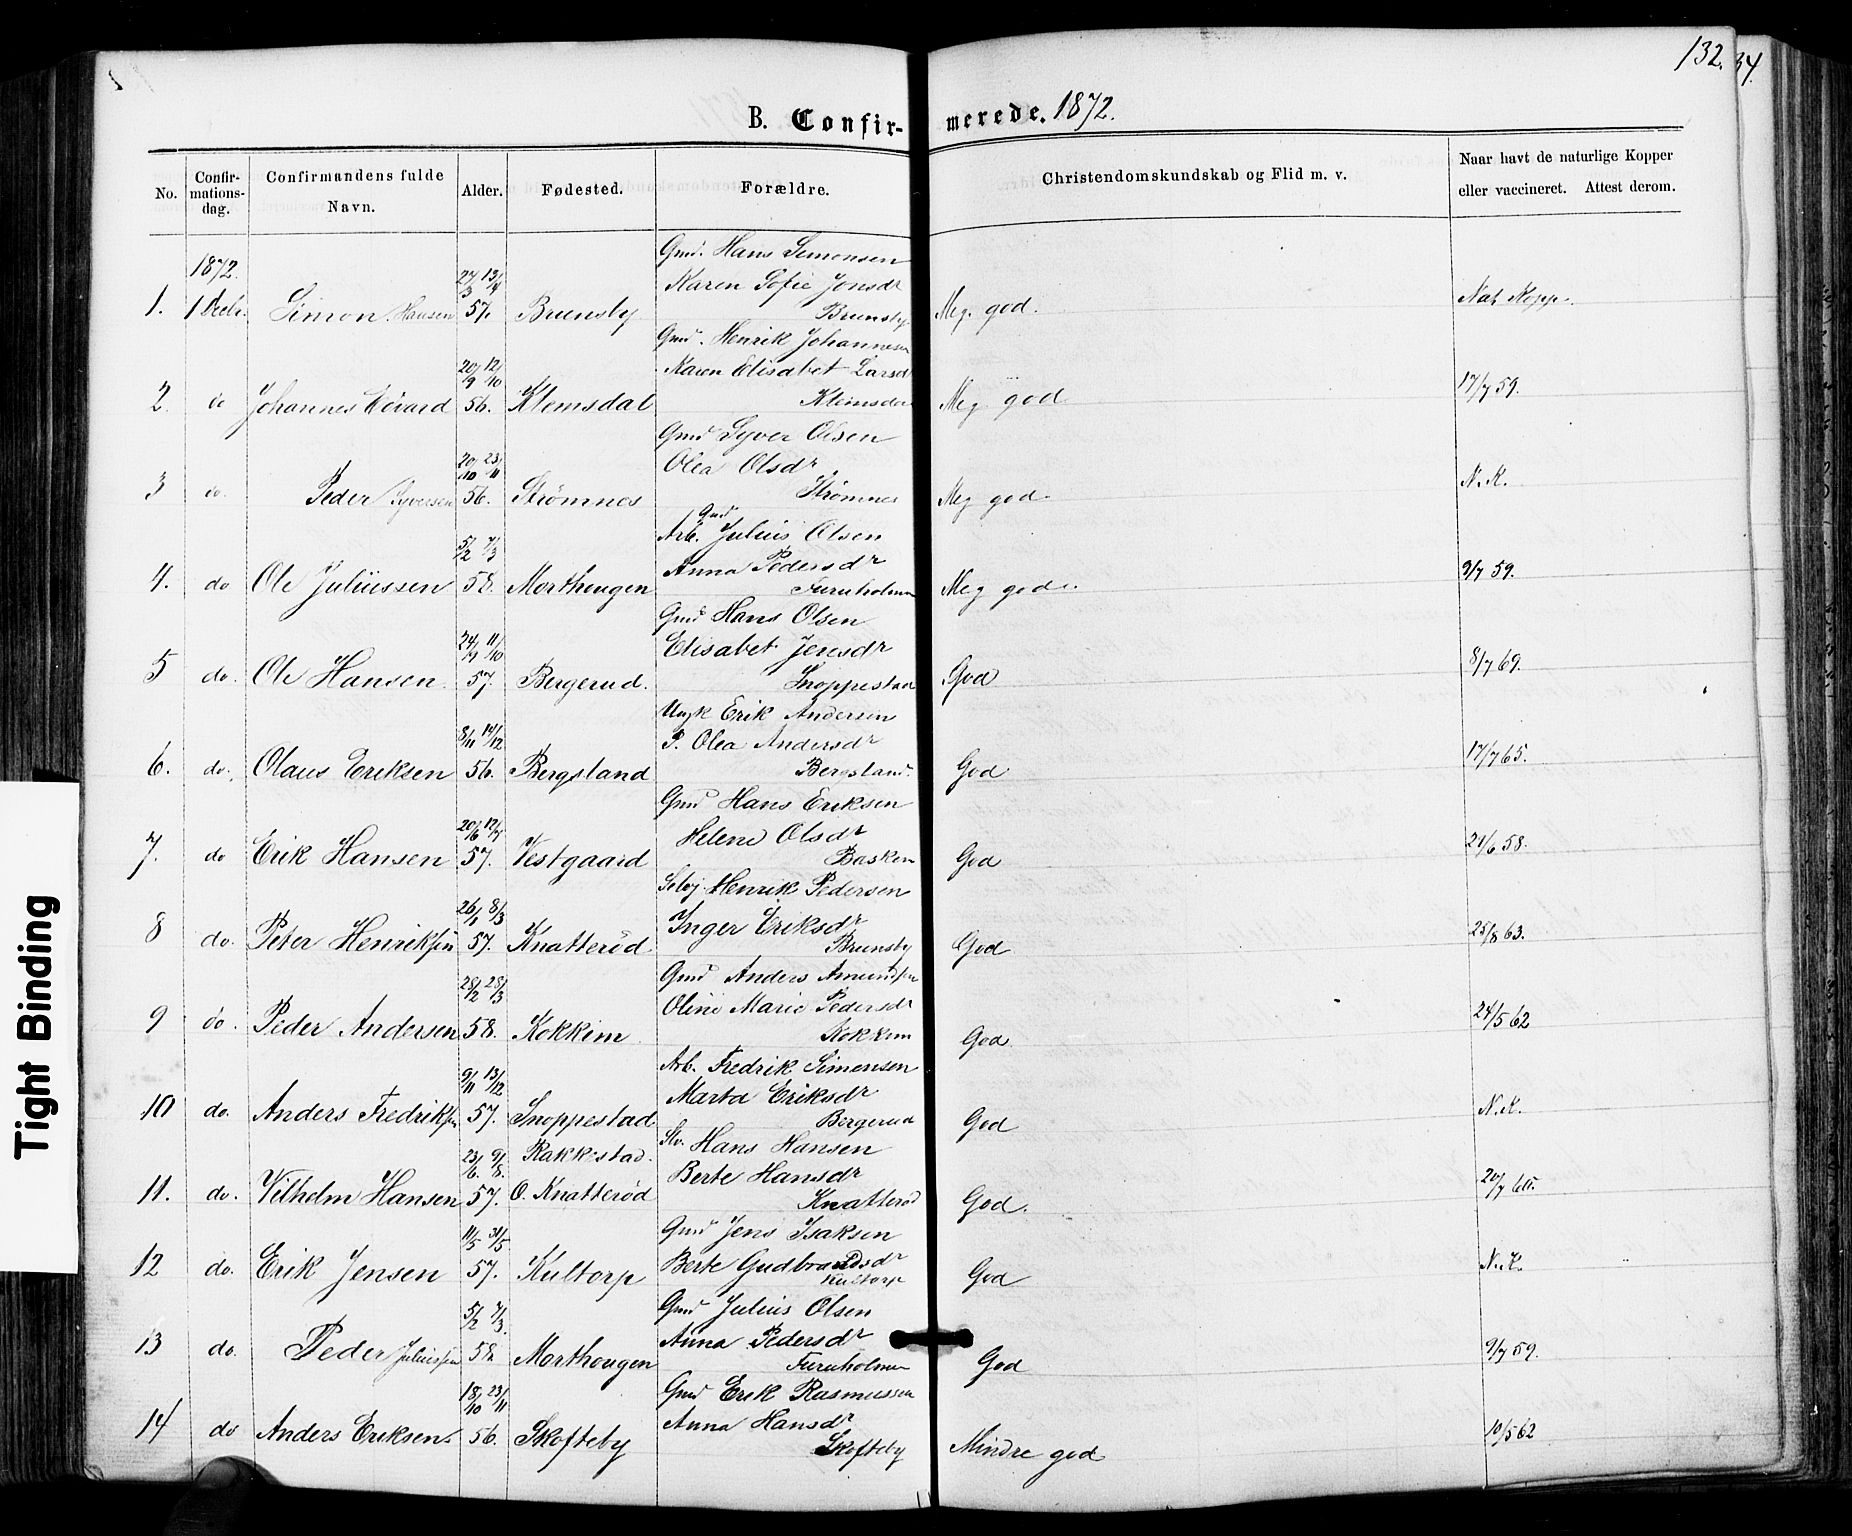 132.
34.
B. Confir- merede. 1872.
No. Confir-mations-dag. Confirmandens fulde Navn. Alder. Fødested. Forældre. Christendomskundskab og Flid m. v. Naar havt de naturlige Kopper eller vaccineret. Attest derom.
1872.
Gmd. Hans Simonsen
27/3 13/4 Karen Sofie Jonsdr
1. 1 Decbr. Simon Hansen 57. Brunsby Brunsby Meg. god. Nat. Kopp.
Gmd. Henrik Johannesen
20/9 12/10 Karen Elisabet Larsd
2. do Johannes Edvard 56. Klemsdal Klemsdal Meg god 17/7 59.
Gmd Syver Olsen
20/10 23/11 Olea Olsdr
3 do. Peder Syversen 56. Strømnes Strømnes Meg god. N. K.
Gmd
Arb. Julius Olsen
5/2 7/3 Anna Pedersdr
4. do Ole Juliussen 58. Morthougen Furuholmen Meg god. 9/7 59.
Gmd Hans Olsen
24/9 11/10 Elisabet Jensdr
5 do. Ole Hansen. 57. Bergerud. Snoppestad God 8/7 69.
Ungk Erik Andersen
8/11 14/12 P. Olea Andersdr
6. do. Olaus Eriksen 56. Bergsland Bergsland. God 17/7 65.
Gmd Hans Eriksen
20/6 12/7 Helene Olsdr
7. do Erik Hansen 57. Vestgaard Basken God 21/6 58.
Selvej. Henrik Pedersen
26/1 8/3 Inger Eriksdr
8 do. Peter Henriksen 57. Knatterød Brunsby God 25/8 63.
Gmd Anders Amundsen
28/2 28/3 Oline Marie Pedersdr
9 do. Peder Andersen 58. Kokkim Kokkim God 24/5 62
Arb. Fredrik Simonsen
9/11 13/12 Marta Eriksdr
10 do. Anders Fredriksen 57. Snoppestad Bergerud God N. K.
Slv. Hans Hansen
23/6. 9/8. Rakkestad. Berte Hansdr
11. do. Vilhelm Hansen 57. O. Knatterød Knatterød God. 20/7 60.
Gmd Jens Isaksen
11/5 31/5 Berte Gudbrandsdr
12 do. Erik Jensen 57. Kultorp Kultorp God N. K.
Gmd Julius Olsen
5/2 7/3. Anna Pedersdr
13 do. Peder Juliussen 58 Morthougen Furuholmen God 9/7 59.
Gmd Erik Rasmussen
18/10 23/11 Anna Hansdr
14 do Anders Eriksen 56. Skofteby Skofteby Mindre god 10/5 62
Tight Binding